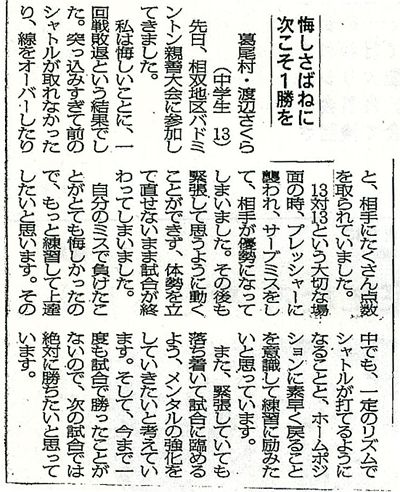 悔しさばねに
次こそ１勝を
葛尾村・渡辺さくら
（中学生　13）
先日、相双地区バドミ
ントン親善大会に参加し
てきました。
私は悔しいことに、一
回戦敗退という結果でし
た。突っ込みすぎて前の
シャトルが取れなかった
り、線をオーバーしたり
と、相手にたくさん点数
を取られていました。
13対13という大切な場
面の時、プレッシャーに
襲われ、サーブミスをし
て、相手が優勢になって
しまいました。その後も
緊張して思うように動く
ことができず、体勢を立
て直せないまま試合が終
わってしまいました。
自分のミスで負けたこ
とがとても悔しかったの
で、もっと練習して上達
したいと思います。その
中でも、一定のリズムで
シャトルが打てるように
なることと、ホームポジ
ションに素早く戻ること
を意識して練習に励みた
いと思っています。
また、緊張していても
落ち着いて試合に臨める
よう、メンタルの強化を
していきたいと考えてい
ます。そして、今まで一
度も試合で勝ったことが
ないので、次の試合では
絶対に勝ちたいと思って
います。